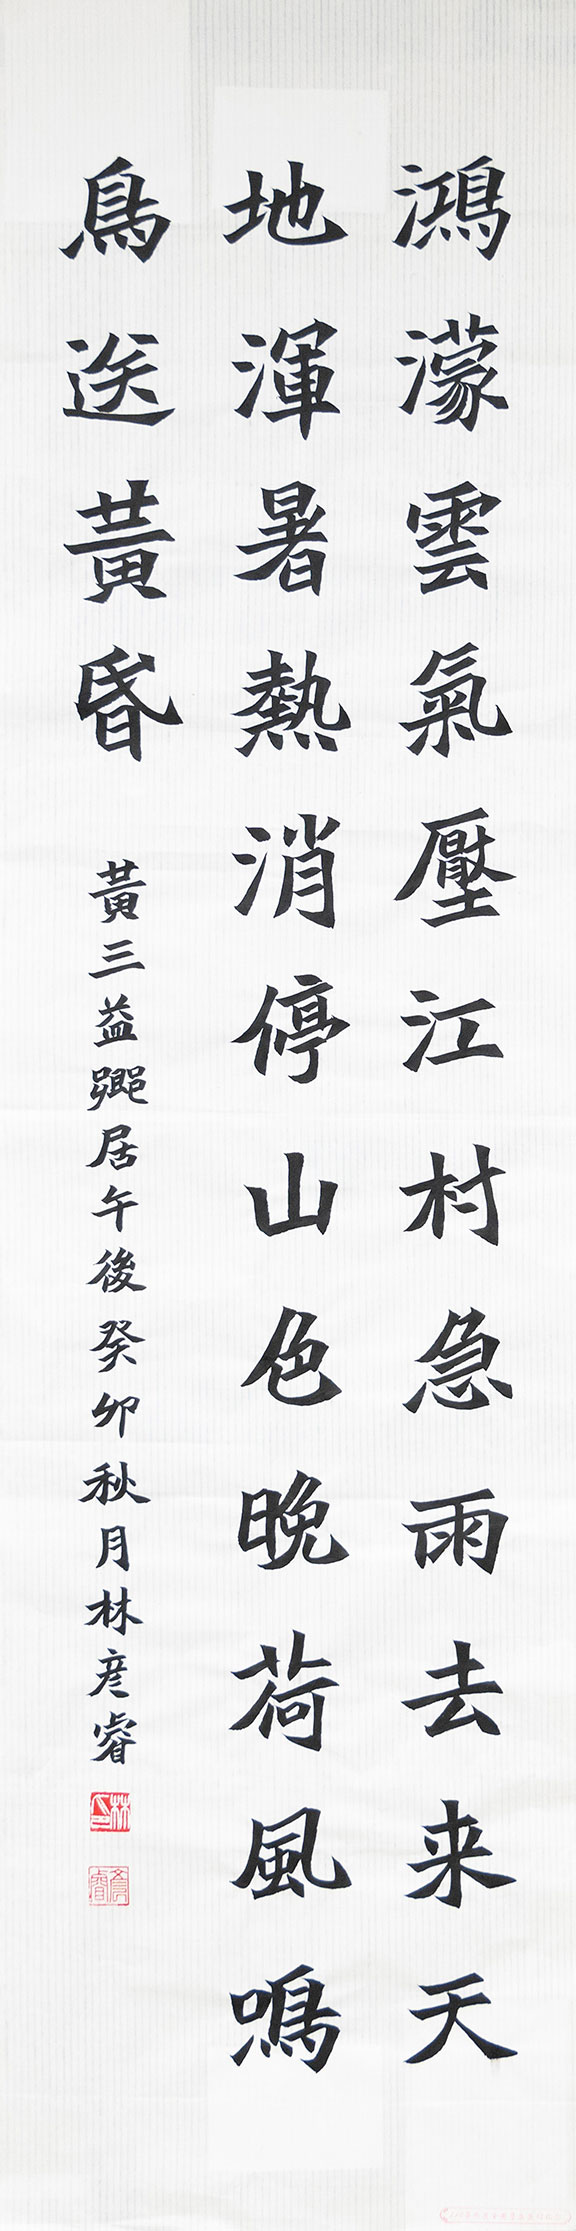 鴻濛雲氣壓江村急雨去来天
地渾暑熱消停山色晚荷風鳴
鳥送黃昬
黃三益鄉居午後癸卯秋月林彥睿
林印
彥睿